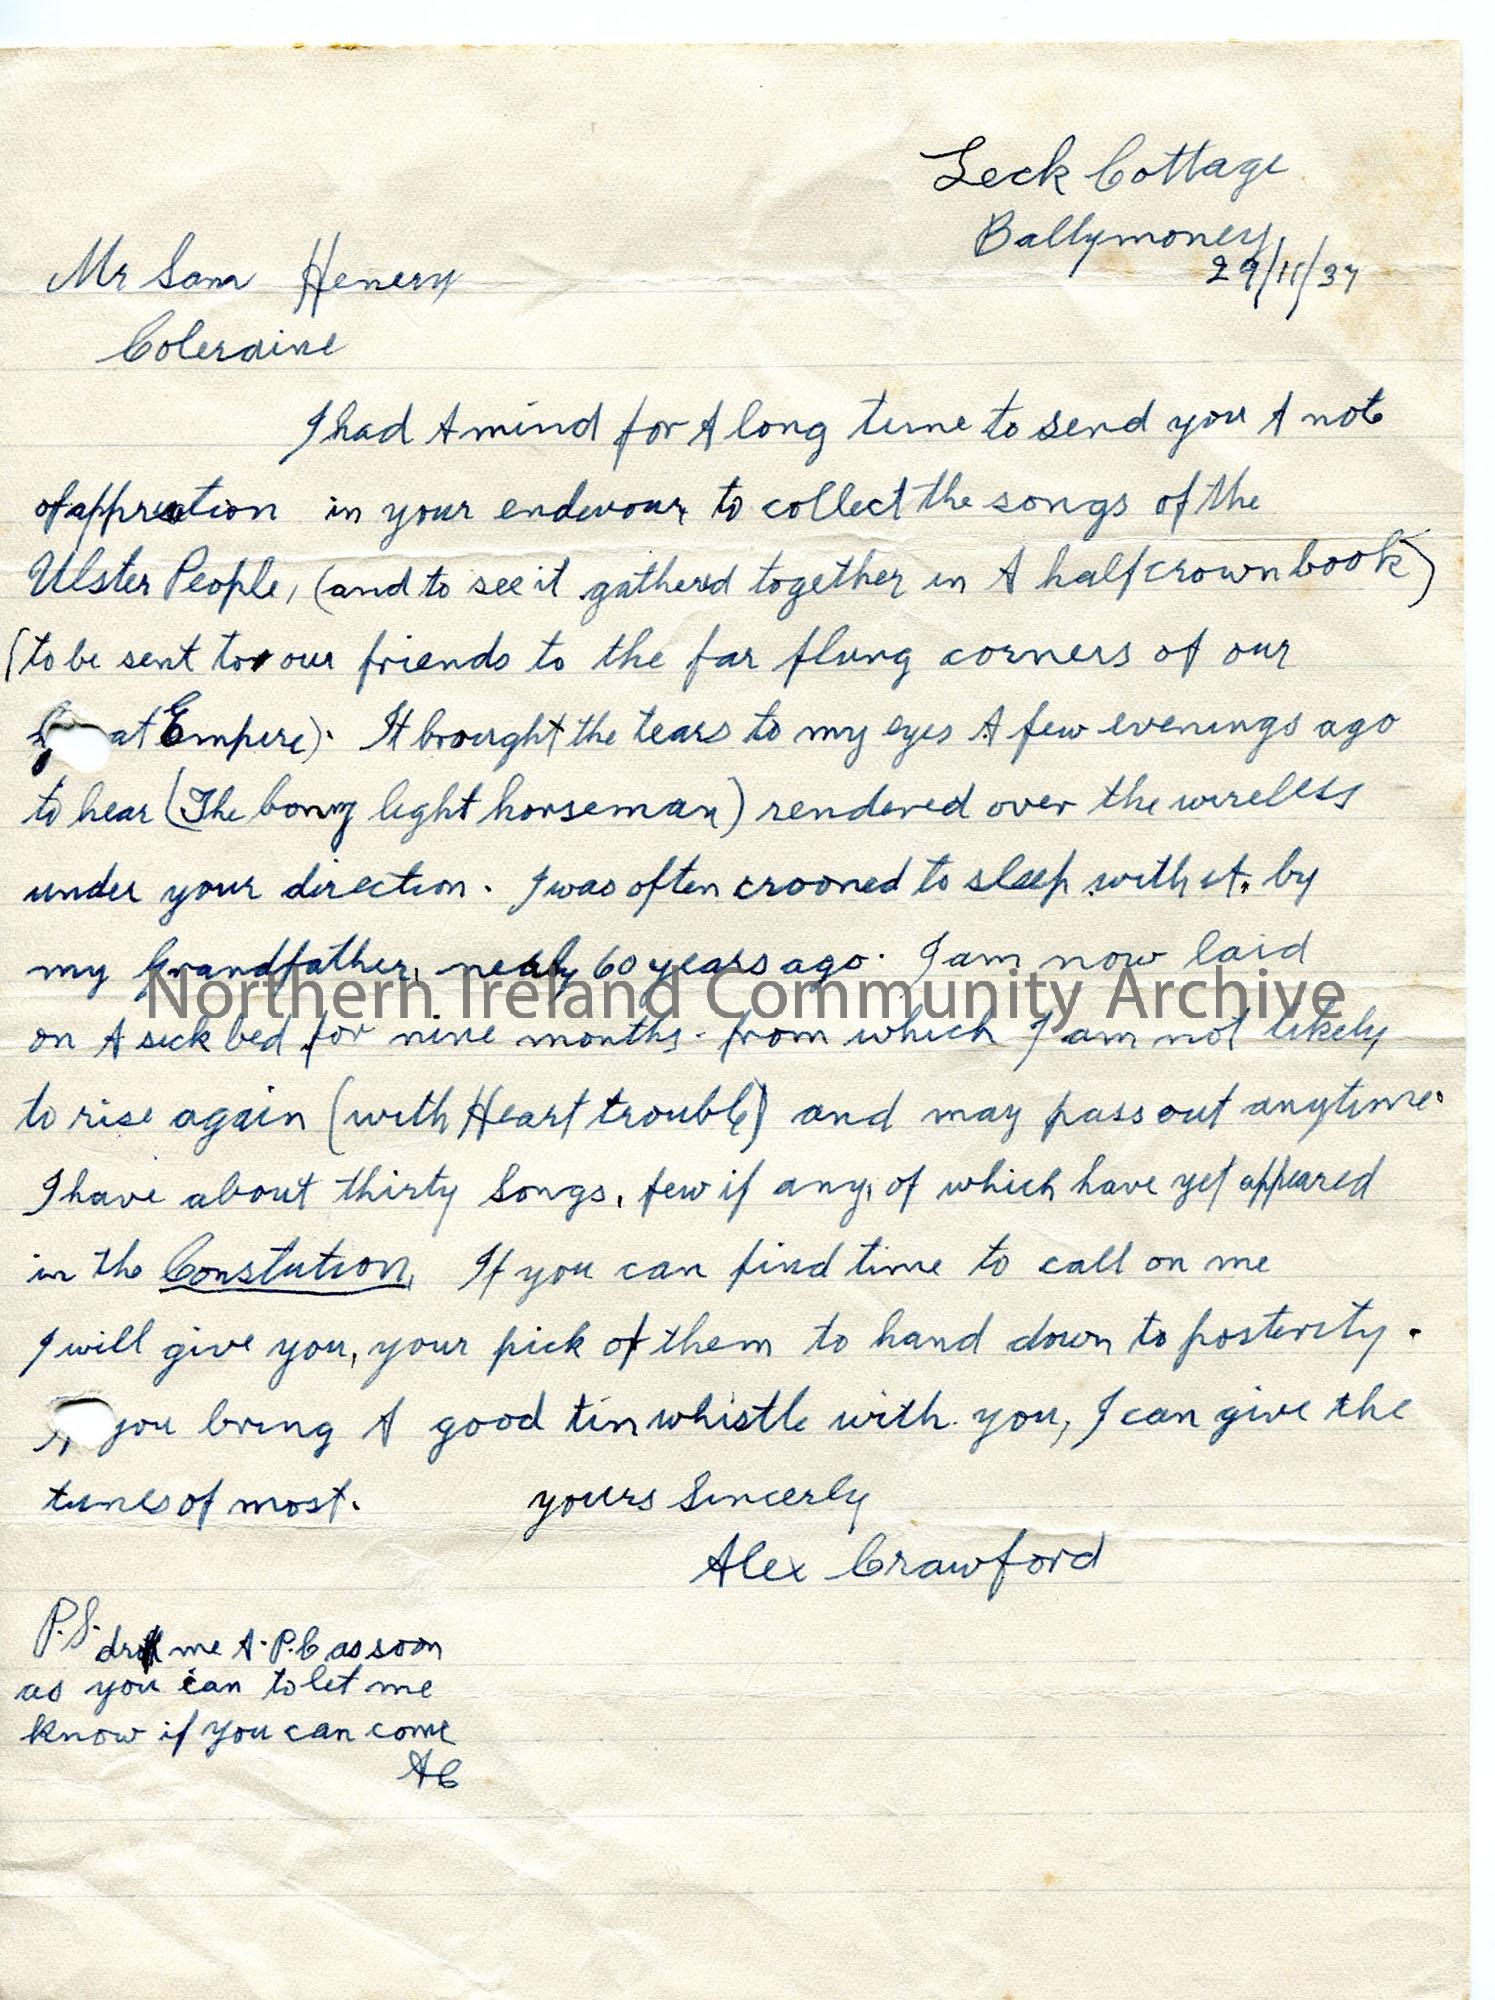 Leck Cottage
Ballymoney
29/11/37
Mr Sam Henery
Coleraine
I had A mind for A long time to send you A note
of appreation in your endevour, to collect the songs of the
Ulster People, (and to see it gatherd together in A half crown book)
(to be sent to our friends to the far flung corners of our
at Empire). It brought the tears to my eyes A few evenings ago
to hear (The bonny light horseman) rendered over the wireless
under your direction. I was often crooned to sleep with it. by
my Grandfather, nearly 60 years ago. I am now laid
Northern Ireland Community Archive
on A sick bed for nine months. from which I am not likely
to rise again (with Heart trouble) and may pass out anytime.
I have about thirty Songs, few if any, of which have yet appeared
in the Constution, If you can find time to call on me
I will give you, your pick of them to hand down to posterity.
you bring A good tin whistle with you, I can give the
tunes of most. yours Sincerly
Alex Crawford
P.S. drop me A. P.C as soon
as you can to let me
know if you can come
AC